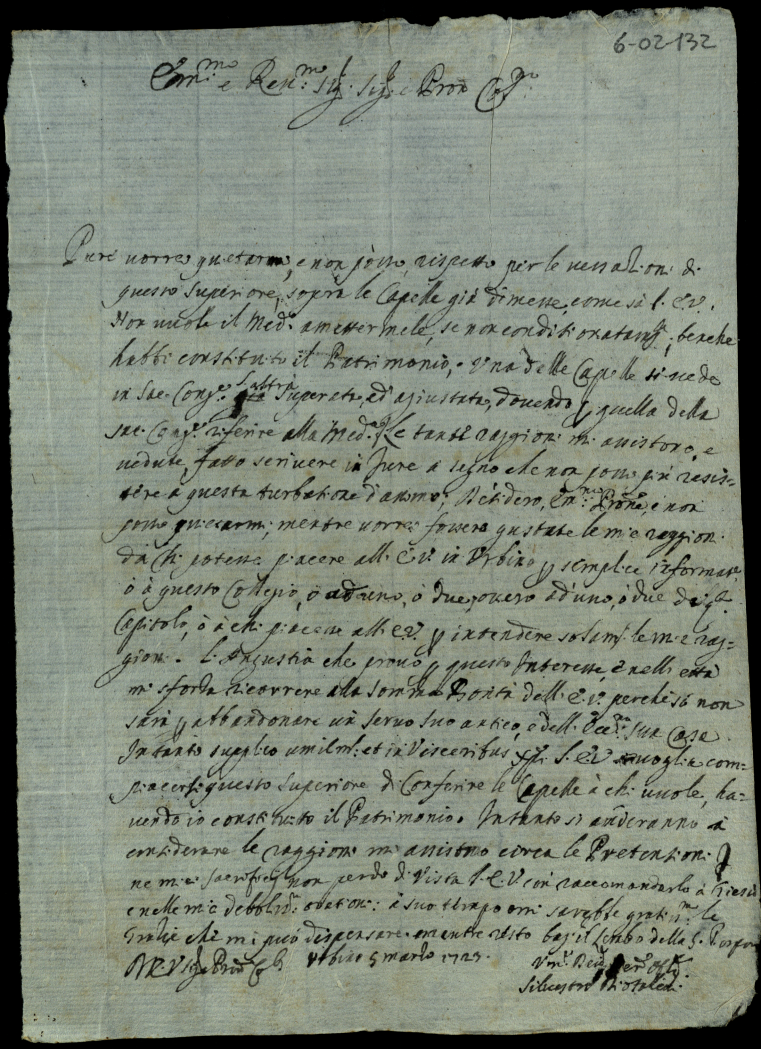 6-02-132
Em.mo e Rev.mo Sig.r Sig.r e Pron Col.mo
Pure vorrei quietarmi, e non posso, rispetto per le vessationi di
questo Superiore, sopra le Capelle già dimesse, come sà l'E.V.
Non vuole il Med.o ametter mele, se non conditionatam.te, benche
habbi constituito il Patrimonio. Una delle Capelle si vede
in Sac. Cong.e l'altra superata, ed agiustata, dovendo p quella della
Sac. Cong.e riferire alla Med.a Le tante raggioni mi assistono, e
vedute, fatto scrivere in Jure a segno che non posso più resis-
tere a questa turbatione d'animo; Desidero, Em.mo Prone, e non
posso quietarmi, mentre vorrei fossero gustate le mie raggioni
da chi potesse piacere all'E.V. in Urbino p semplice informat.e
ò à questo Collegio, ò ad uno, ò due, overo ad uno, ò due di q.l
Capitolo, ò à chi piacesse all'E.V. p intendere solam.te le mie rag-
gioni. L'Angustia che provo p questo Interesse, e nelli età
mi sforza ricorrere alla somma Bontà dell'E.V. perche sò non
sarà p abbandonare un servo suo antico, e dell'Ecc.ma sua Casa
Intanto supplico umilm.te et in Visceribus Xpi l'E.V. voglia com-
piacersi questo Superiore di Conferire le Capelle à chi vuole, ha-
vendo io constituito il Patrimonio. Intanto si anderanno à
considerare le raggioni mi assistono circa le Pretentioni
ne miei sacrificij non perdo di Vista l'E.V. con raccomandarlo à Giesù
e nelle mie debboliss. orationi: à suo tempo mi sarebbe gratiss.ma le
Gratie che mi può dispensare mentre resto baciando il Lembo della S. Porpora
D.V.E. Sig.r Pron Col. Urbino 5 marzo 1725.
Um.o Dev.o Ser.e Obl.o
Silvestro